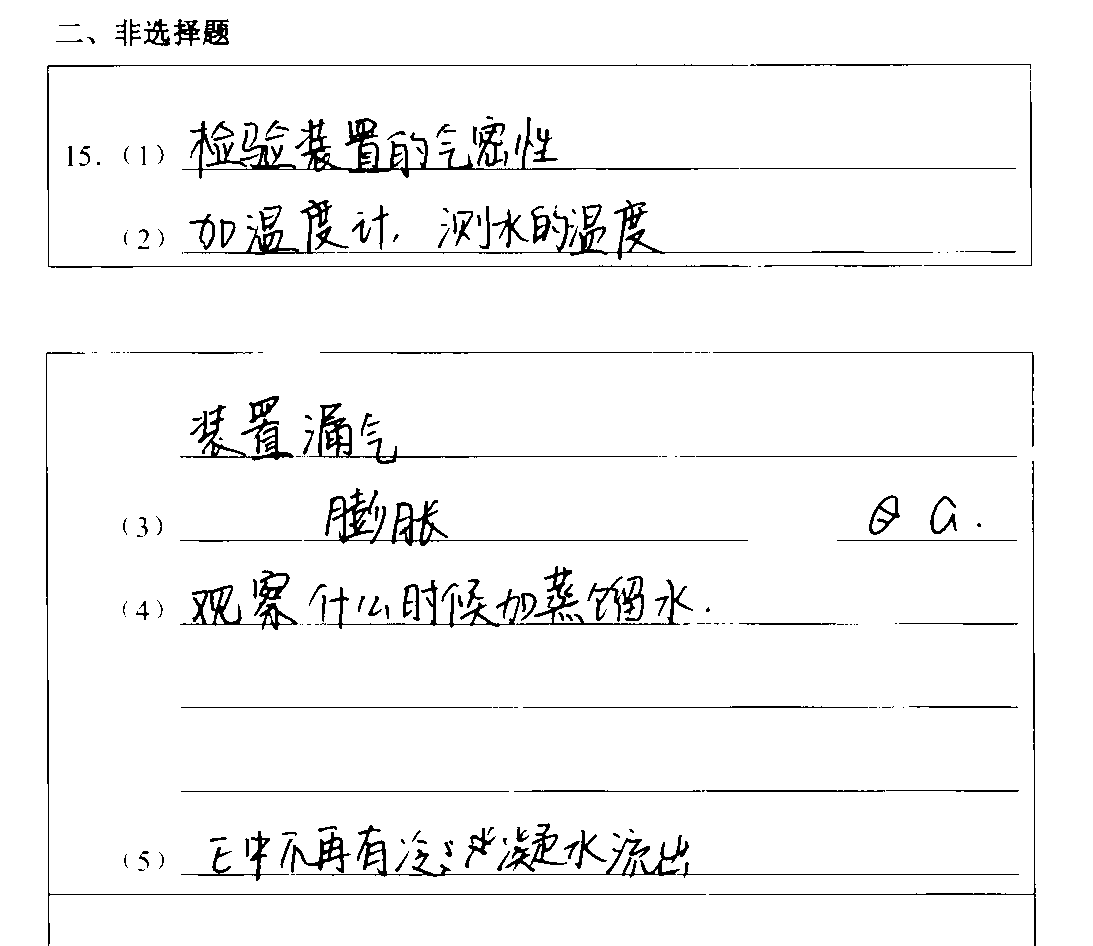 二、非选择题
15.（1）检验装置的气密性
（2）加温度计，测水的温度
装置漏气
（3）膨胀 a.
（4）观察什么时候加蒸馏水.
（5）E中不再有冷凝水流出